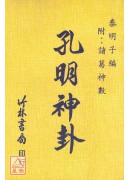 泰明子編
附：諸葛神數
孔明神卦
竹林書局 印